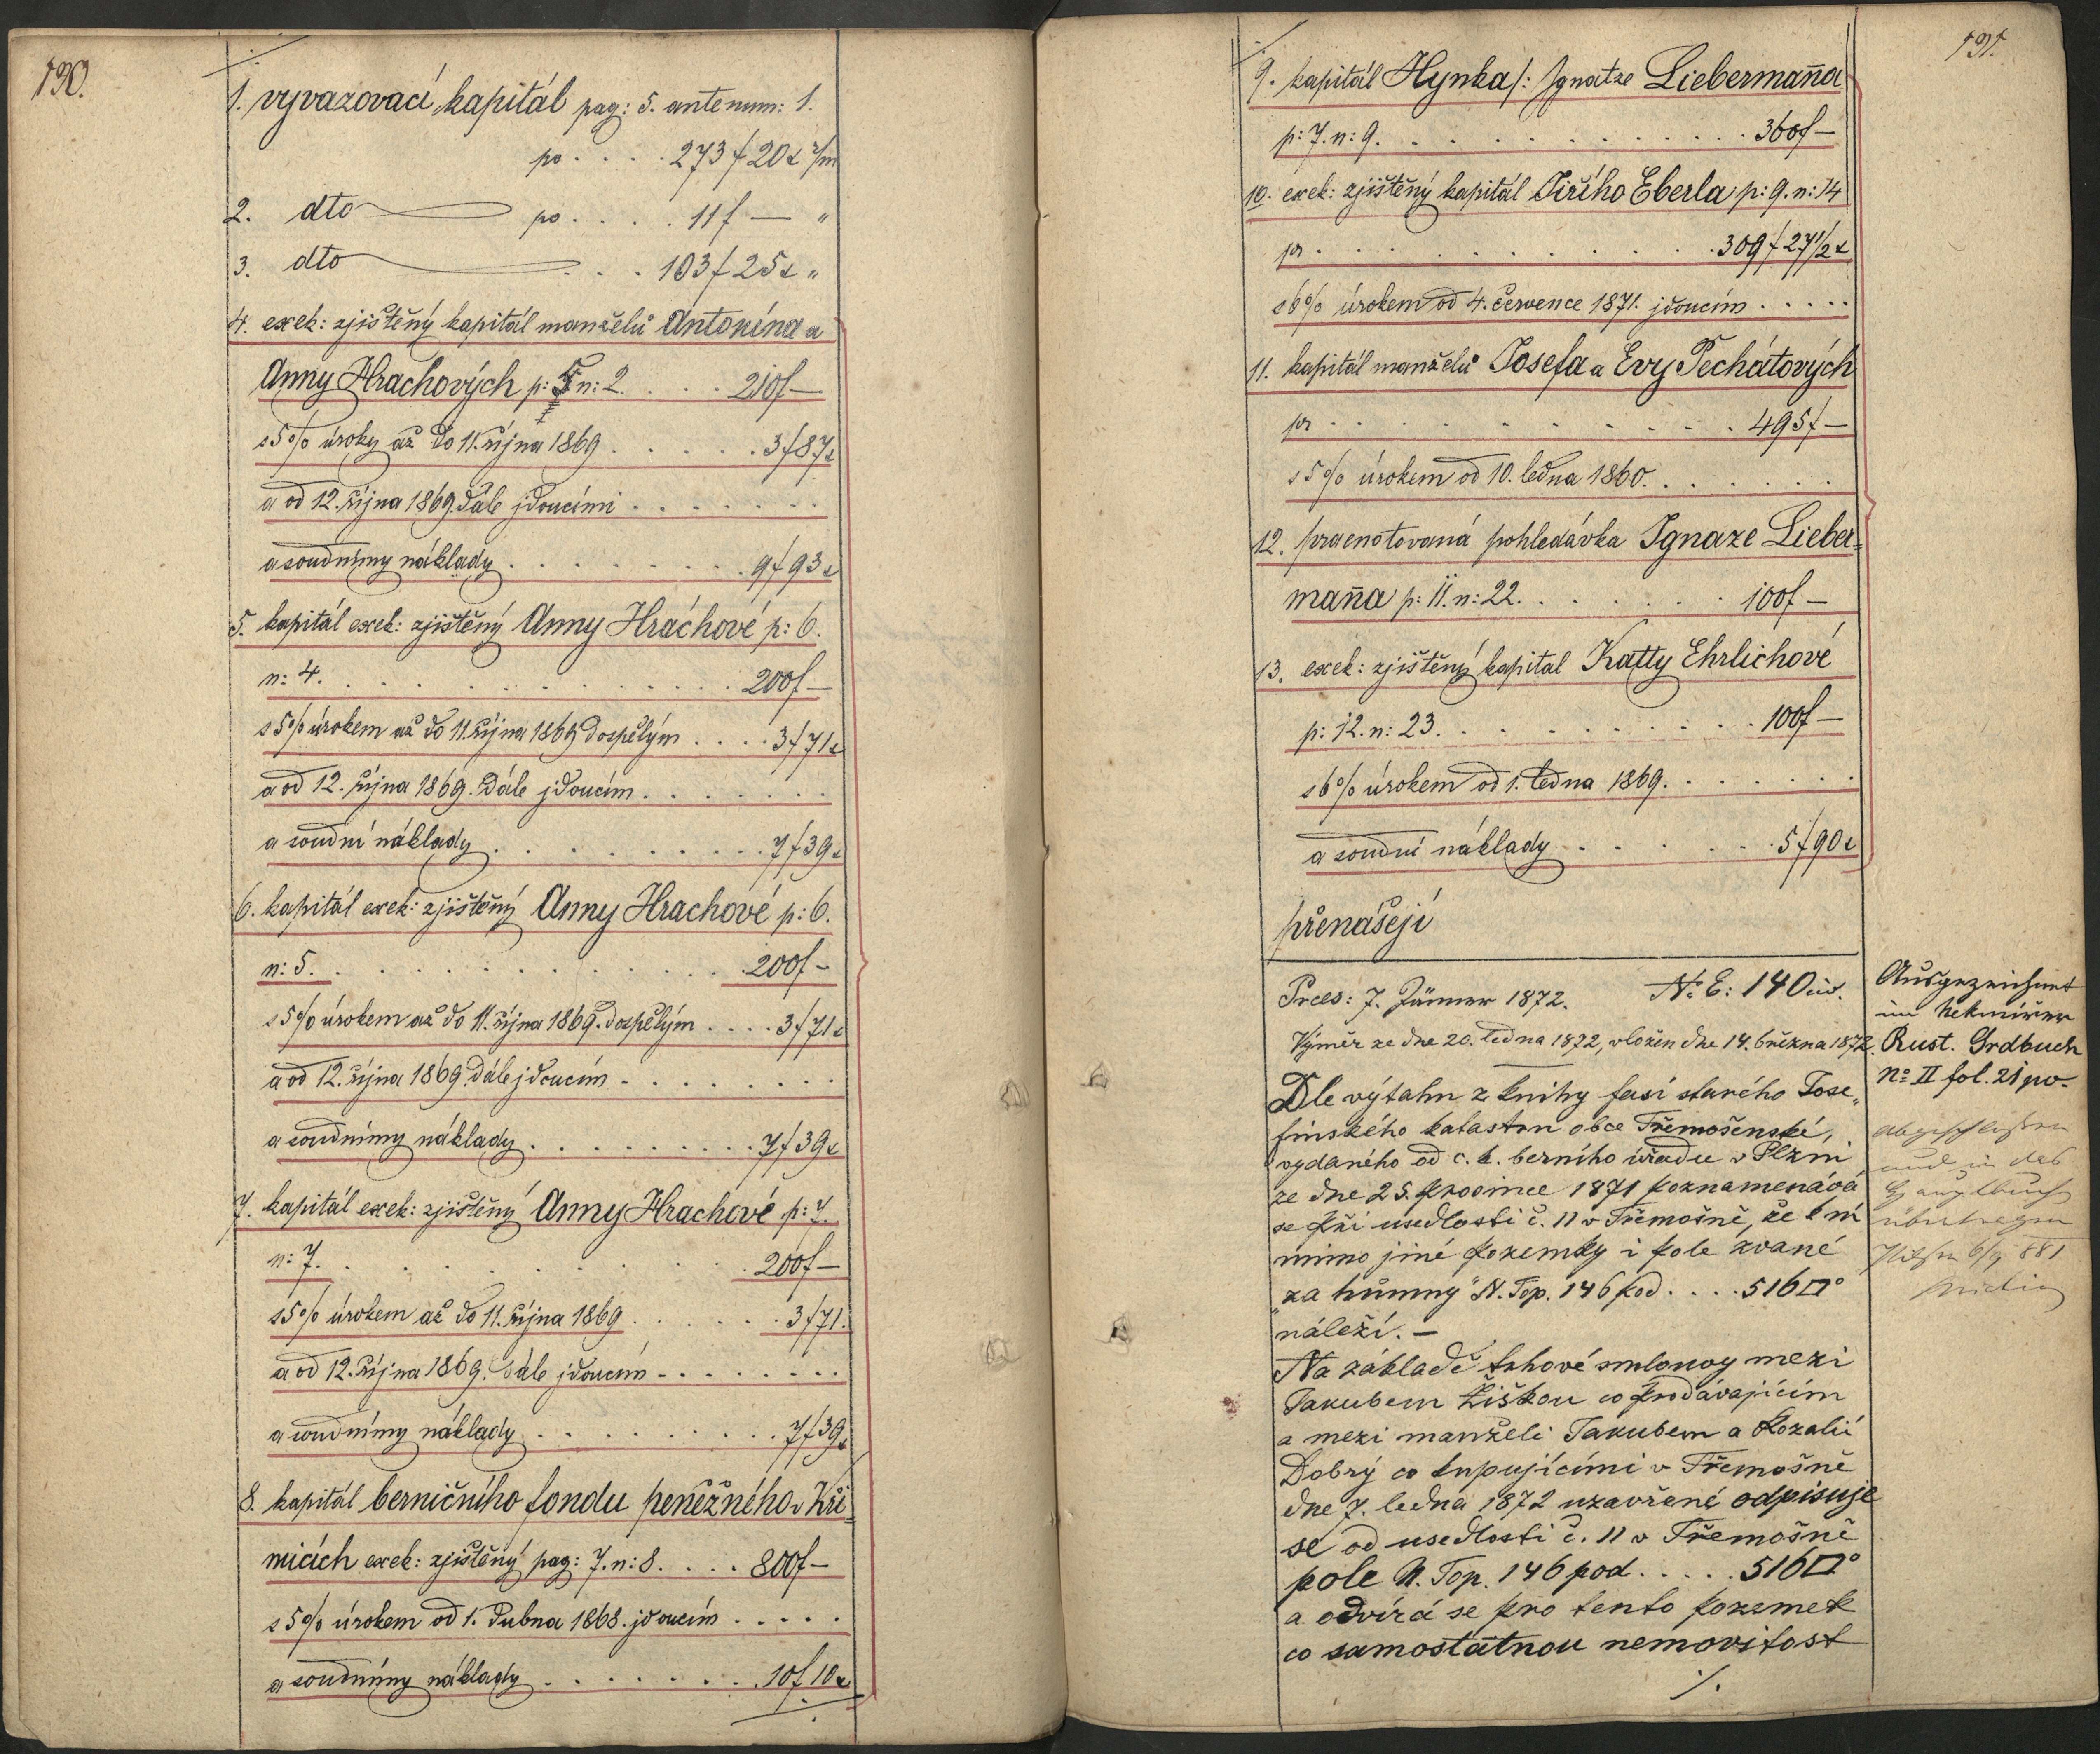 190.
1. vyvazovací kapitál pag: 5. ante num: 1.
po . . . . 273 f 20 x c/m
2. dto po . . . . 11 f — "
3. dto . . . 103 f 25 x "
4. exek: zjištěný kapitál manželů Antonína a
Anny Hrachových p: 5 n: 2. . . . . 210 f —
s 5% úroky až do 11. října 1869 . . . . . 3 f 87 x
a od 12. října 1869. dále jdoucími . . . . . . .
a soudnímy náklady . . . . . . . . 9 f 93 x
5. kapitál exek: zjištěný Anny Hráchové p: 6.
n: 4. . . . . . . . . . . . . 200 f —
s 5% úrokem až do 11. října 1869 dospělým . . . . 3 f 71 x
a od 12. října 1869. dále jdoucím . . . . . . .
a soudní náklady . . . . . . . . . 7 f 39 x
6. kapitál exek: zjištěný Anny Hrachové p: 6.
n: 5. . . . . . . . . . . . . 200 f –
s 5% úrokem až do 11. října 1869. dospělým . . . . 3 f 71 x
a od 12. října 1869. dále jdoucím . . . . . . . .
a soudnímy náklady . . . . . . . . . 7 f 39 x
7. kapitál exek: zjištěný Anny Hrachové p: 7.
n: 7. . . . . . . . . . . . 200 f —
s 5% úrokem až do 11. října 1869 . . . . . . 3 f 71.
a od 12. října 1869. dále jdoucím . . . . . . . .
a soudnímy náklady . . . . . . . . . 7 f 39 x
8. kapitál berničního fondu peněžného v Kři-
micích exek: zjištěný pag: 7. n: 8. . . . . 800 f —
s 5% úrokem od 1. dubna 1868. jdoucím . . . . .
a soudnímy náklady . . . . . . . 10 f 10 x
191.
9. kapitál Hynka /: Ignatze Liebermanna
p: 7. n: 9. . . . . . . . . . . . . 360 f —
10. exek: zjištěný kapitál Jiřího Eberla p: 9. n: 14
pr . . . . . . . . . . . 309 f 27 1/2 x
s 6% úrokem od 4. července 1871. jdoucím . . . . .
11. kapitál manželů Josefa a Evy Pechátových
pr . . . . . . . . . . . 495 f —
s 5% úrokem od 10. ledna 1860. . . . . . .
12. praenotovaná pohledávka Ignaze Lieber-
manna p: 11. n: 22. . . . . . . . 100 f —
13. exek: zjištěný kapital Katty Ehrlichové
p: 12. n: 23. . . . . . . . . . 100 f —
s 6% úrokem od 1. ledna 1869. . . . . . .
a soudní náklady . . . . . . 5 f 90 x
přenášejí
Praes: 7. Jänner 1872. No E: 140 civ.
Výměr ze dne 20. ledna 1872, vložen dne 14. března 1872.
Dle výtahu z knihy fasí starého Jose-
finského katastru obce Třemošenské,
vydaného od c. k. berního úřadu v Plzni
ze dne 25. prosince 1871 poznamenává
se při usedlosti č. 11 v Třemošně, že k ní
mimo jiné pozemky i pole zvané
"za humny" N. Top. 146 pod . . . . 516 □°
náleží. —
Na základě trhové smlouvy mezi
Jakubem Žiškou co prodávajícím
a mezi manželi Jakubem a Rozalií
Dobrý co kupujícími v Třemošně
dne 7. ledna 1872 uzavřené odpisuje
se od usedlosti č. 11 v Třemošně
pole N. Top. 146 pod . . . . . 516 □°
a odvírá se pro tento pozemek
co samostatnou nemovitost
./.
Ausgezeichnet
im
Rust. Grdbuch
No II fol. 21 po.
abgeschlossen
und in das
Hauptbuch
übertragen
6/9 881